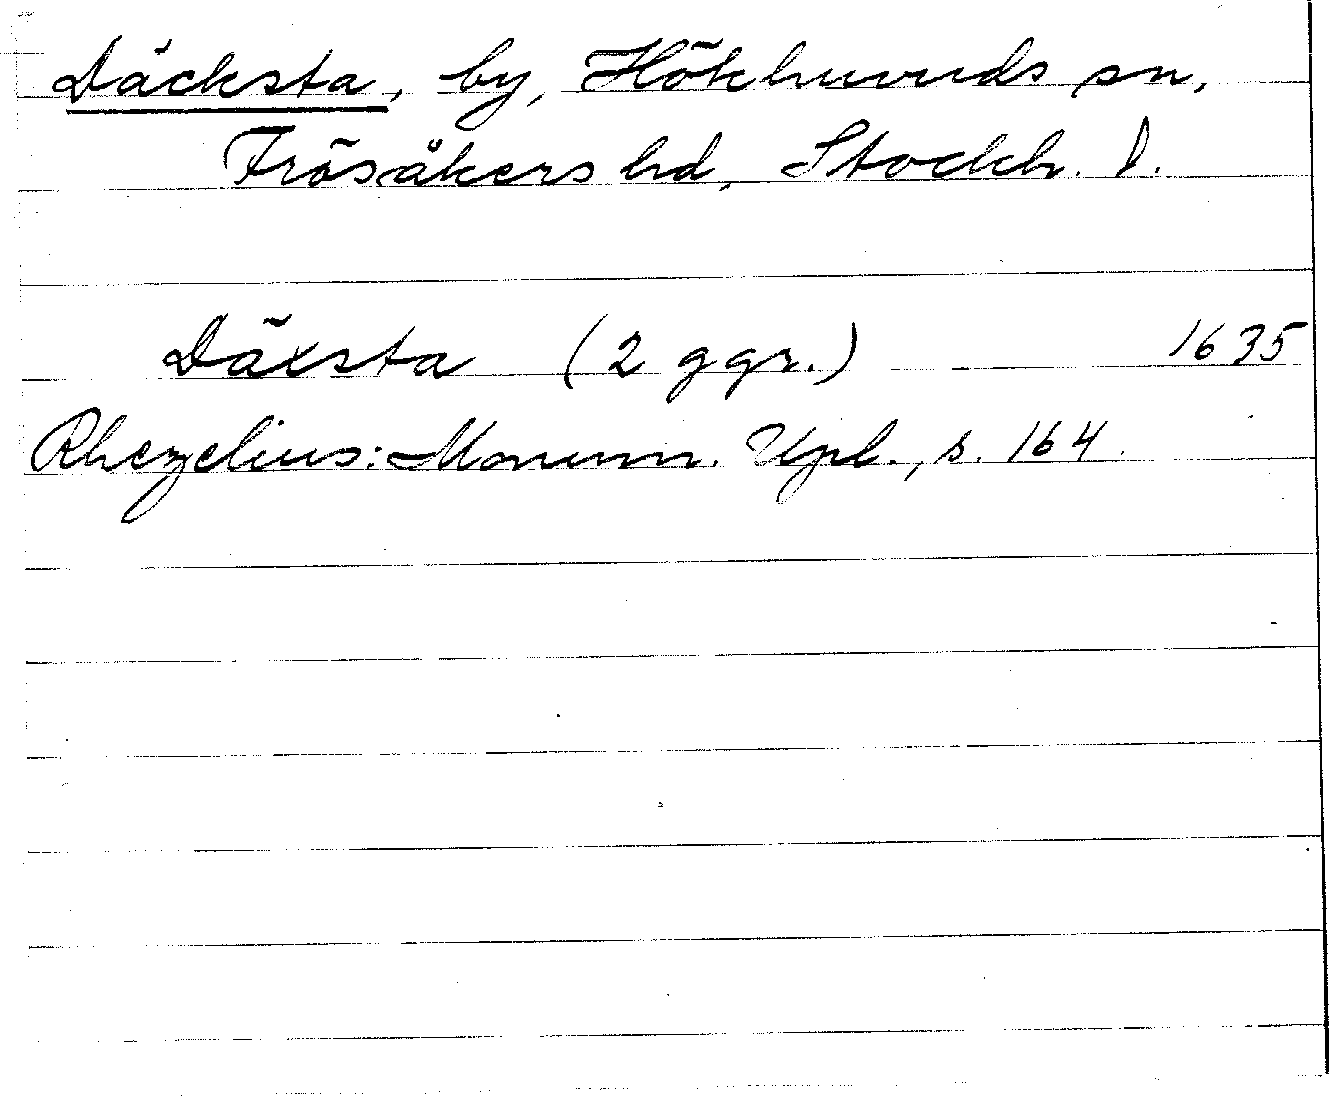 Däcksta, by, Hökhuvuds sn,
Frösåkers hd, Stockh. l.
Däxsta (2 ggr.) 1635
Rhezelius: Monum. Upl., s. 164.